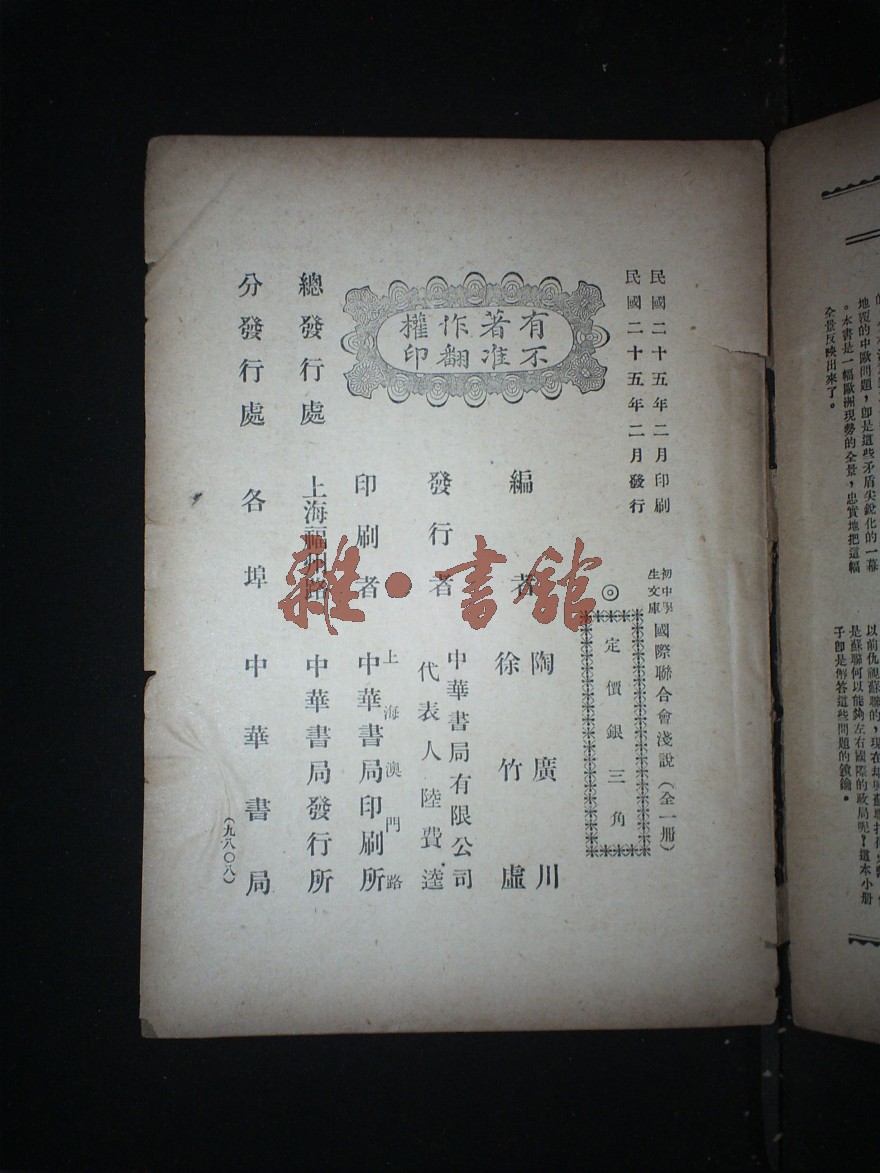 民國二十五年二月印刷
民國二十五年二月發行
初中學生文庫 國際聯合會淺說（全一冊）
◎定價銀三角
有著作權
不准翻印
編者 陶廣川
徐竹虛
發行者 中華書局有限公司
代表人 陸費逵
印刷者 上海澳門路
中華書局印刷所
總發行處 上海福州路 中華書局發行所
分發行處 各埠 中華書局
（九八〇八）
雜·書舘
地覆的中歐問題，卽是這些矛盾尖銳化的一幕
。本書是一幅歐洲現勢的全景，忠實地把這幅
全景反映出來了。
是蘇聯何以能夠左右國際的政局呢？這本小册
子卽是解答這些問題的鎖鑰。